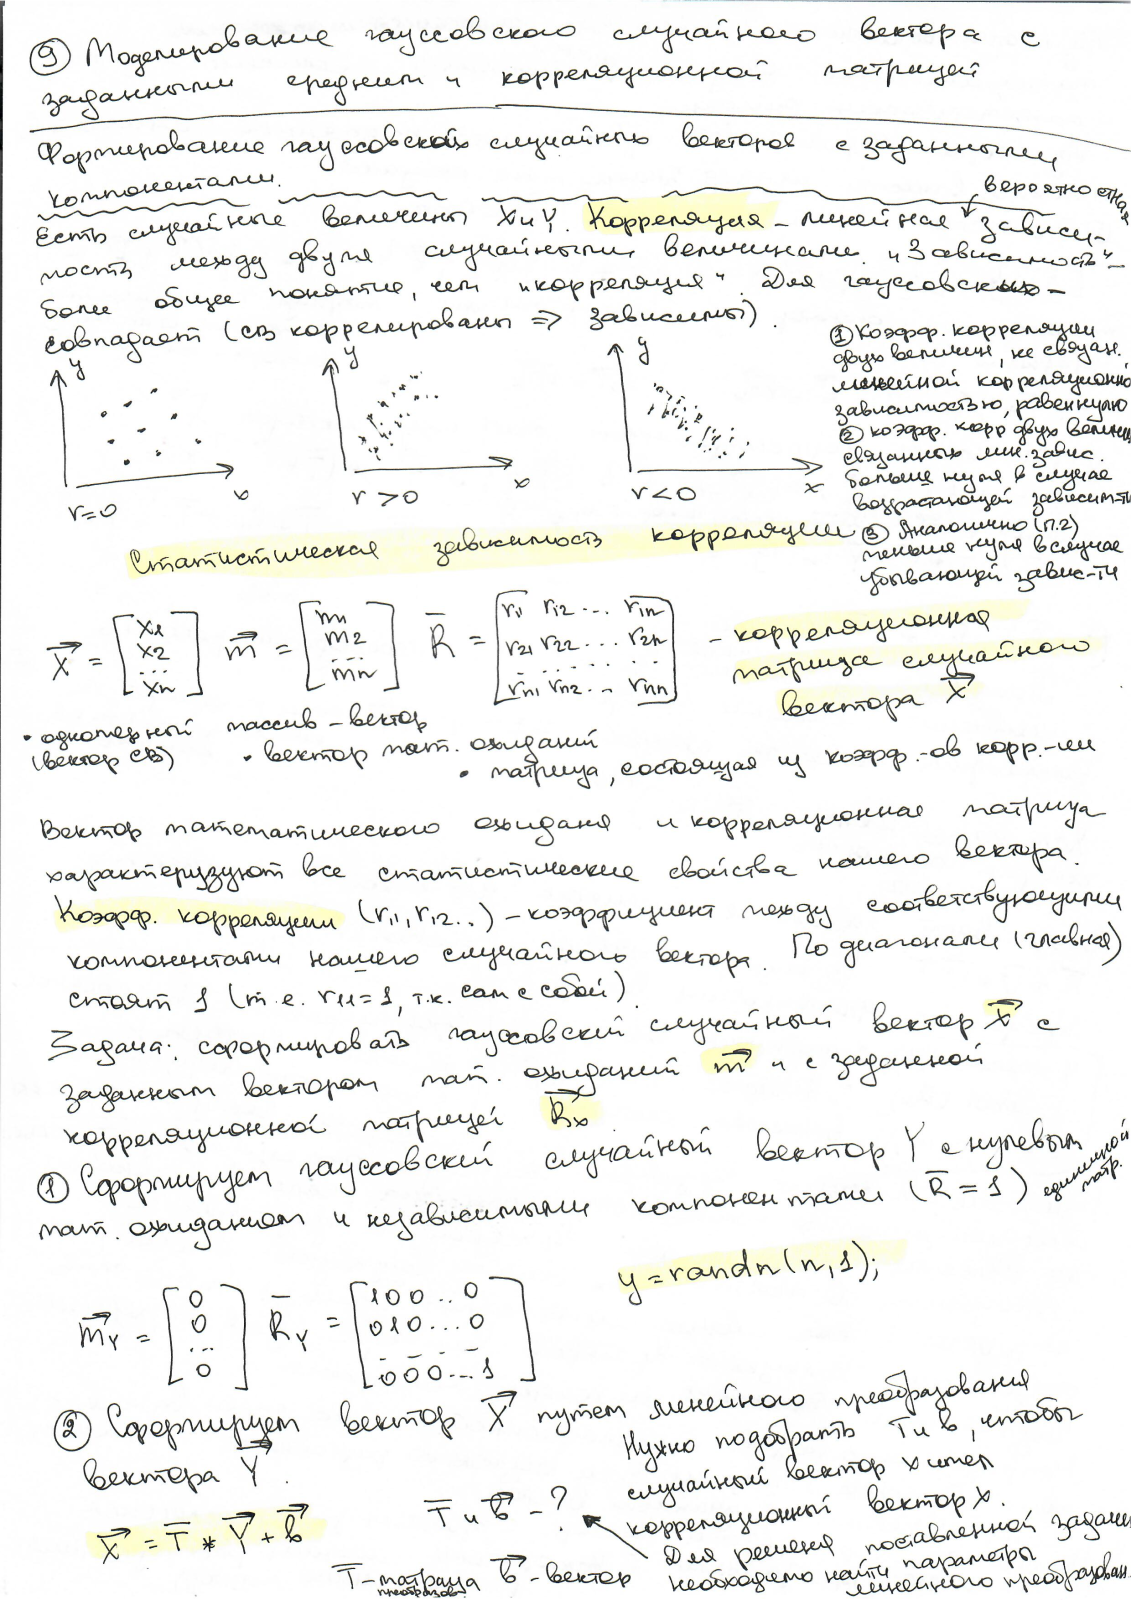 ⑨ Моделирование гауссовского случайного вектора с
заданными средним и корреляционной матрицей
Формирование гауссовских случайных векторов с заданными
компонентами.
вероятностная
Есть случайные величины X и Y. Корреляция – линейная зависи-
мость между двумя случайными величинами. „Зависимость" –
более общее понятие, чем „корреляция". Для гауссовских –
совпадает (СВ коррелированы => зависимы).
y
x
r=0
y
x
r>0
y
x
r<0
① Коэфф. корреляции
двух величин, не связан.
линейной корреляционно
зависимостью, равен нулю
② коэфф. корр двух величин
связанных лин. завис.
больше нуля в случае
возрастающей зависим-ти
③ Аналогично (п.2)
меньше нуля в случае
убывающей завис-ти
Статистическая зависимость корреляции
X = [x1 x2 ... xn] m = [m1 m2 ... mn] R = [r11 r12 ... r1n
r21 r22 ... r2n
. . . . . .
rn1 rn2 ... rnn]
– корреляционная
матрица случайного
вектора X
• одномерный массив – вектор
(вектор СВ)
• вектор мат. ожиданий
• матрица, состоящая из коэфф.-ов корр.-ии
Вектор математического ожидания и корреляционная матрица
характеризуют все статистические свойства нашего вектора.
Коэфф. корреляции (r11, r12..) – коэффициент между соответствующими
компонентами нашего случайного вектора. По диагонали (главная)
стоят 1 (т.е. r11=1, т.к. сам с собой).
Задача: сформировать гауссовский случайный вектор X с
заданным вектором мат. ожиданий m и с заданной
корреляционной матрицей Rx
① Сформируем гауссовский случайный вектор Y с нулевым
мат. ожиданием и независимыми компонентами (R = 1) единичной
матр.
y = randn(n,1);
mY = [0 0 ... 0] RY = [1 0 0 .. 0
0 1 0 ... 0
0 0 0 ... 1]
② Сформируем вектор X путем линейного преобразования
вектора Y.
X = T * Y + b
T и b – ?
Нужно подобрать T и b, чтобы
случайный вектор x имел
корреляционный вектор X.
Для решения поставленной задачи
необходимо найти параметры
линейного преобразован.
T – матрица b – вектор
преобразов.